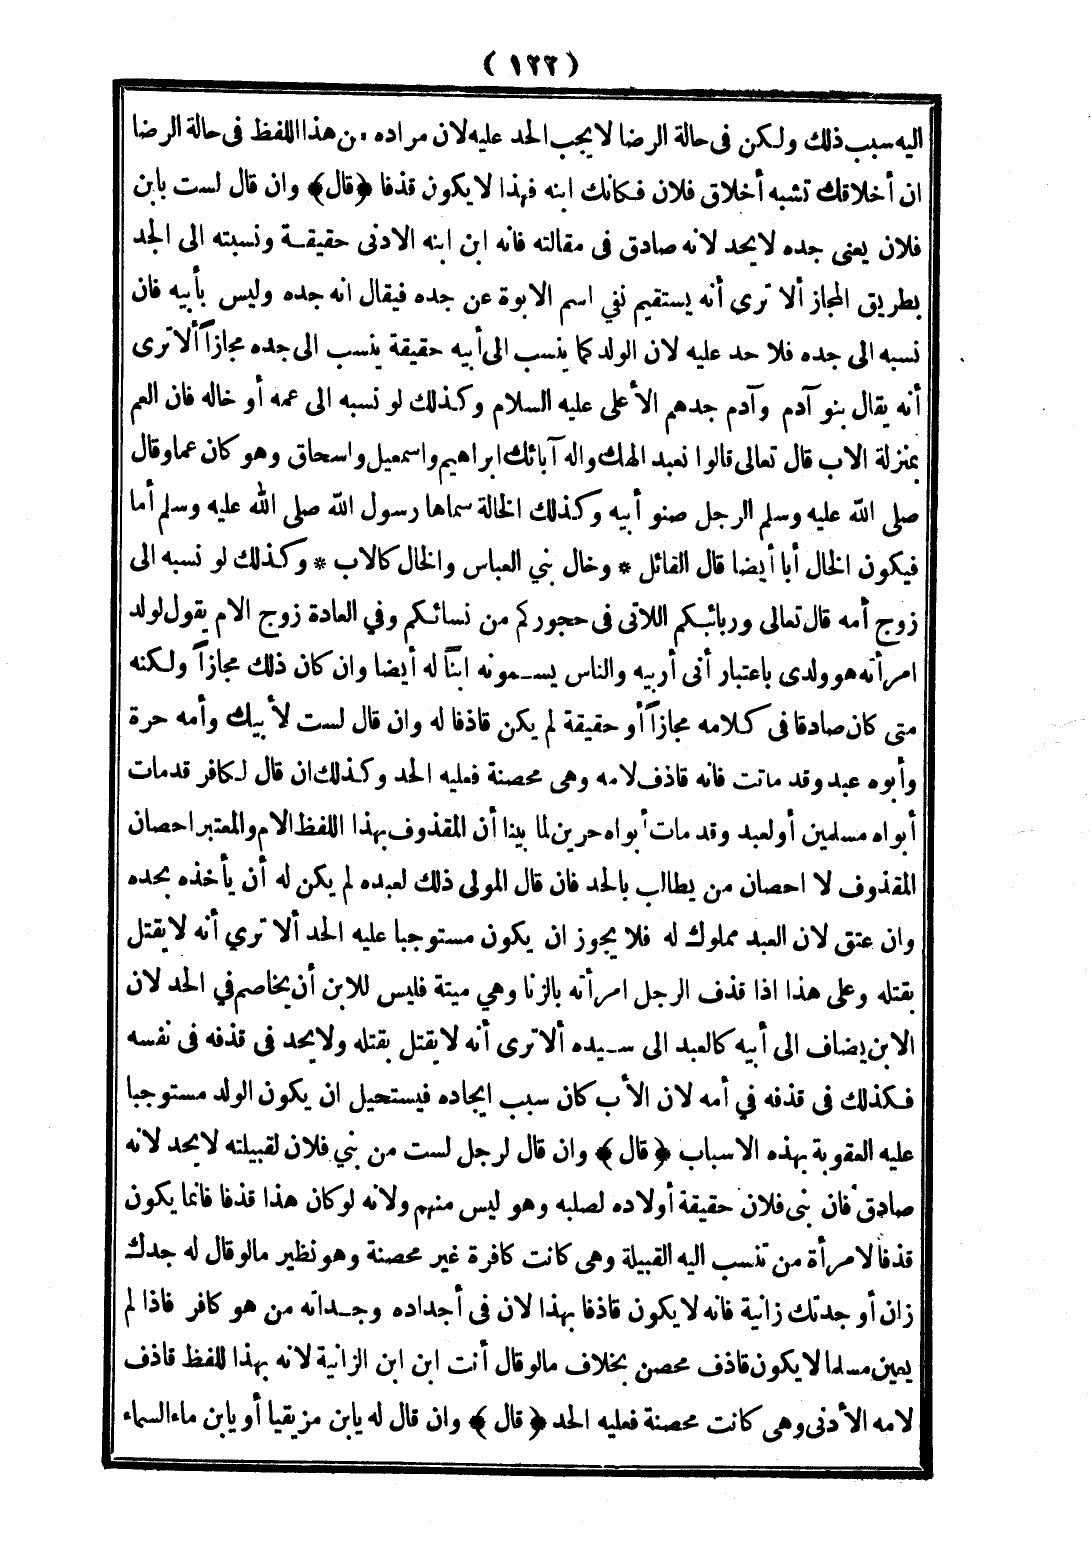 (١٢٢)
اليه سبب ذلك ولكن فى حالة الرضا لا يجب الحد عليه لان مراده من هذا اللفظ فى حالة الرضا
ان أخلاقك تشبه أخلاق فلان فكانك ابنه فهذا لا يكون قذفا ﴿قال﴾ وان قال لست بابن
فلان يعنى جده لا يحد لانه صادق فى مقالته فانه ابن ابنه الادنى حقيقة ونسبته الى الجد
بطريق المجاز ألا ترى أنه يستقيم نفي اسم الابوة عن جده فيقال انه جده وليس بأبيه فان
نسبه الى جده فلا حد عليه لان الولد كما ينسب الى أبيه حقيقة ينسب الى جده مجازاً ألا ترى
أنه يقال بنو آدم وآدم جدهم الأعلى عليه السلام وكذلك لو نسبه الى عمه أو خاله فان العم
بمنزلة الاب قال تعالى قالوا نعبد الهك واله آبائك ابراهيم واسمعيل واسحاق وهو كان عما وقال
صلى الله عليه وسلم الرجل صنو أبيه وكذلك الخالة سماها رسول الله صلى الله عليه وسلم أما
فيكون الخال أبا أيضا قال القائل * وخال بني العباس والخال كالاب * وكذلك لو نسبه الى
زوج أمه قال تعالى وربائبكم اللاتى فى حجوركم من نسائكم وفي العادة زوج الام يقول لولد
امرأته هو ولدى باعتبار أنى أربيه والناس يسمونه ابناً له أيضا وان كان ذلك مجازاً ولكنه
متى كان صادقا فى كلامه مجازاً أو حقيقة لم يكن قاذفا له وان قال لست لأبيك وأمه حرة
وأبوه عبد وقد ماتت فانه قاذف لامه وهى محصنة فعليه الحد وكذلك ان قال لكافر قد مات
أبواه مسلمين أو لعبد وقد مات أبواه حرين لما بينا أن المقذوف بهذا اللفظ الام والمعتبر احصان
المقذوف لا احصان من يطالب بالحد فان قال المولى ذلك لعبده لم يكن له أن يأخذه بحده
وان عتق لان العبد مملوك له فلا يجوز ان يكون مستوجبا عليه الحد ألا تري أنه لا يقتل
بقتله وعلى هذا اذا قذف الرجل امرأته بالزنا وهي ميتة فليس للابن أن يخاصم في الحد لان
الابن يضاف الى أبيه كالعبد الى سيده ألا ترى أنه لا يقتل بقتله ولا يحد فى قذفه فى نفسه
فكذلك فى قذفه في أمه لان الأب كان سبب ايجاده فيستحيل ان يكون الولد مستوجبا
عليه العقوبة بهذه الاسباب ﴿قال﴾ وان قال لرجل لست من بني فلان لقبيلته لا يحد لانه
صادق فان بنى فلان حقيقة أولاده لصلبه وهو ليس منهم ولانه لو كان هذا قذفا فانما يكون
قذفاً لامرأة من تنسب اليه القبيلة وهى كانت كافرة غير محصنة وهو نظير ما لو قال له جدك
زان أو جدتك زانية فانه لا يكون قاذفا بهذا لان فى أجداده وجداته من هو كافر فاذا لم
يعين مسلما لا يكون قاذف محصن بخلاف ما لو قال أنت ابن ابن الزانية لانه بهذا للفظ قاذف
لامه الأدنى وهى كانت محصنة فعليه الحد ﴿قال﴾ وان قال له يا بن مزيقيا أو يا بن ماء السماء